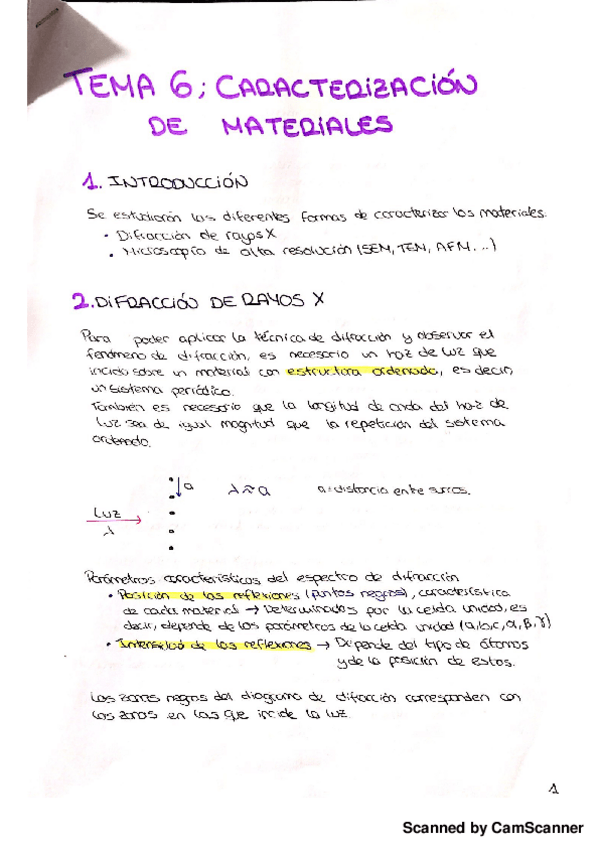 TEMA 6; CARACTERIZACIÓN
DE MATERIALES
1. INTRODUCCIÓN
Se estudiarán las diferentes formas de caracterizar los materiales.
• Difracción de rayos X
• Microscopía de alta resolución (SEM, TEN, AFM...)
2. DIFRACCIÓN DE RAYOS X
Para poder aplicar la técnica de difracción y observar el
fenómeno de difracción, es necesario un haz de luz que
incida sobre un material con estructura ordenada, es decir,
un sistema periódico.
También es necesario que la longitud de onda del haz de
luz sea de igual magnitud que la repetición del sistema
ordenado.
a λ≈a a: distancia entre surcos.
Luz
λ
Parámetros característicos del espectro de difracción
• Posición de las reflexiones (puntos negros), característica
de cada material → Determinados por la celda unidad, es
decir, depende de los parámetros de la celda unidad (a,b,c, α, β, γ)
• Intensidad de las reflexiones → Depende del tipo de átomos
y de la posición de estos.
Las zonas negras del diagrama de difracción corresponden con
las zonas en las que incide la luz.
1
Scanned by CamScanner